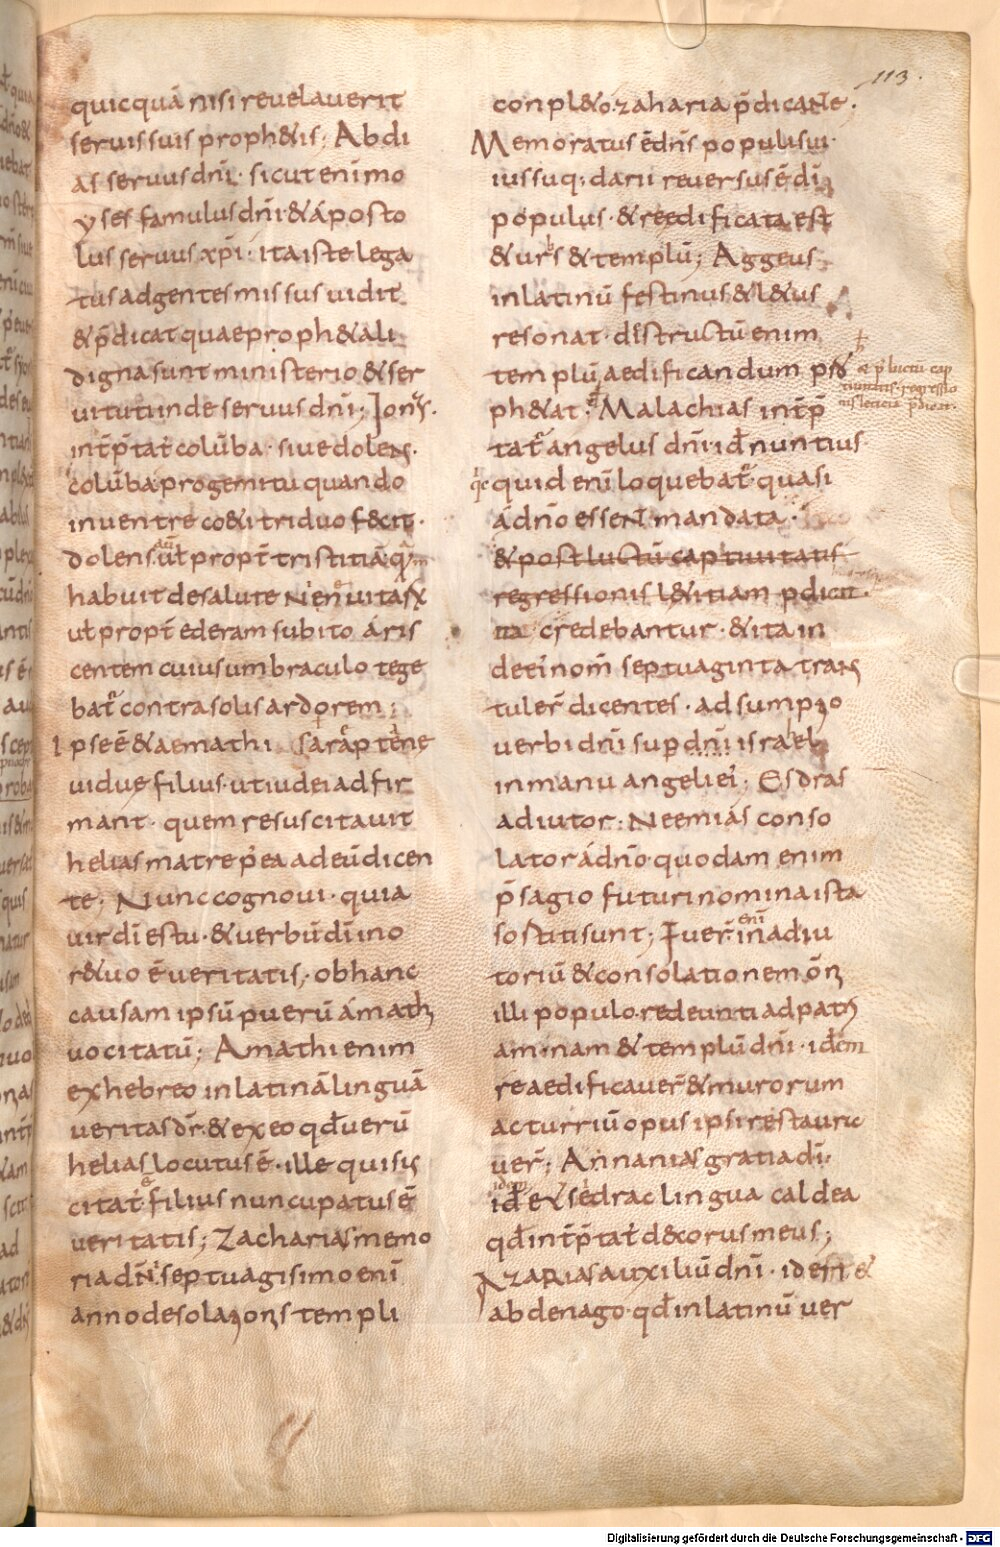 113.
quicquā nisi reuelauerit
seruis suis proph&is; Abdi
as seruus dn̄i· sicut enim o
yses famulus dn̄i & aposto
lus seruus xp̄i· ita iste lega
tus ad gentes missus uidit
& p̄dicat quae proph&ali
digna sunt ministerio & ser
uitut inde seruus dn̄i; Ionas.
int̄p̄tat̄ colūba· siue dolens.
colūba pro gemitu quando
in uentre coeti triduo fecit·
dolens aūt ul̄ propt̄ tristitiā q̄m
habuit de salute
ul̄ propt̄ ederam subito aris
centem cuius umbraculo tege
bat̄ contra solis ardorem;
Ipse ē & aemathi sarāptēne
uidue filius· ut iudei adfir
mant· quem resuscitauit
helias matre p̄ea ad eū dicen
te; Nunc cognoui· quia
uir dī es tu· & uerbū dī in o
r& uo ē ueritatis; ob hanc
causam ipsū puerū amath
uocitatū; Amathi enim
ex hebreo in latinā linguā
ueritas dr̄ & ex eo qđ uerū
helias locutus ē· ille qui sus
citat̄ filius nuncupatus ē
ueritatis; Zacharias memo
ria dn̄i septuagisimo enī
anno desolationis templi
conpl&o· zaharia p̄dicante.
Memoratus ē dn̄s populi sui·
iussuq; darii reuersus ē dī
populus· & reedificata est
& urbs & templū; Aggeus
in latinū festinus & l&us
resonat· destructū enim
templū aedificandum pro
ph&at· Malachias int̄p̄
tat̄ angelus dn̄i· id nuntius
quicquid enī loquebat̄ quasi
a dn̄o essent mandata
& post luctū captiuitatis
regressionis l&itiam p̄dicit
credebantur· & ita in
dei nom̄ septuaginta trans
tuler̄ dicentes· adsumptio
uerbi dn̄i sup dn̄i israhel
in manu angeli ei; Esdras
adiutor· Neemias conso
lator a dn̄o· quodam enim
p̄sagio futuri nomina ista
sortiti sunt; Fuer̄ enī in adiu
toriū & consolationem om̄
illi populo redeunti ad patri
am· nam & templū dn̄i· idem
reaedificauer̄ & murorum
ac turriū opus ipsi restaura
uer̄; Annanias gratia dī·
idem id ē & sedrac lingua caldea
qđ int̄p̄tat̄ d&corus meus;
Azarias auxiliū dn̄i· id est &
abdenago· qđ in latinū uer
Digitalisierung gefördert durch die Deutsche Forschungsgemeinschaft - DFG